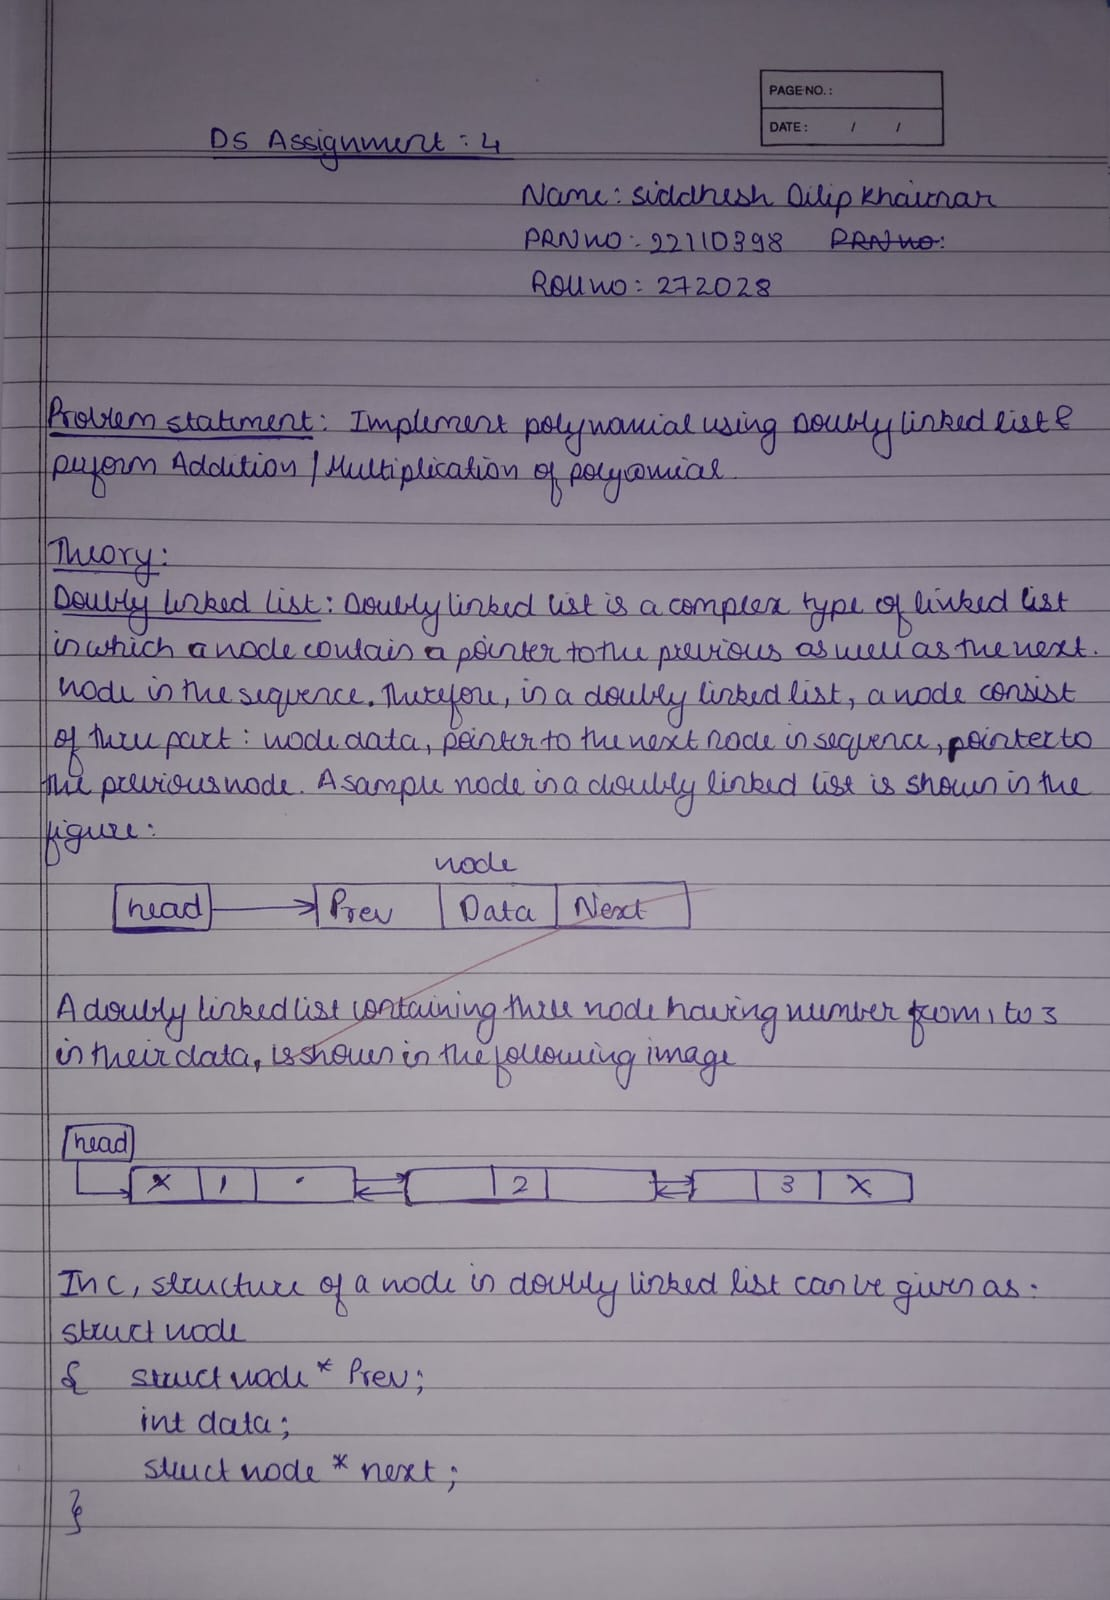 PAGE NO.:
DATE: / /
DS Assignment: 4
Name: Siddhesh Dilip Khairnar
PRN NO: 22110398 PRN NO:
Roll no: 272028
Problem statement: Implement polynomial using Doubly linked list &
perform Addition / Multiplication of polynomial.
Theory:
Doubly linked list: Doubly linked list is a complex type of linked list
in which a node contain a pointer to the previous as well as the next.
node in the sequence. Therefore, in a doubly linked list, a node consist
of three part: node data, pointer to the next node in sequence, pointer to
the previous node. A sample node in a doubly linked list is shown in the
figure:
node
head Prev Data Next
A doubly linked list containing three node having number from 1 to 3
in their data, is shown in the following image
head
X 1 . 2 3 X
In C, structure of a node in doubly linked list can be given as:
struct node
{ struct node * Prev;
int data;
struct node * next;
}